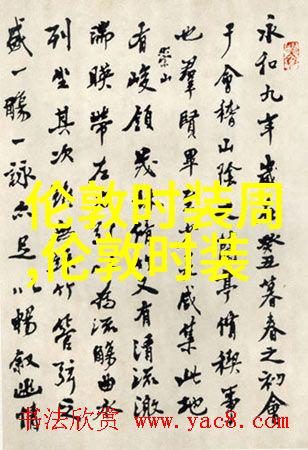 永和九年歲癸丑暮春之初會
于會稽山陰之亭脩禊事
也羣賢畢咸集此地
有崇山峻領茂脩竹又有清流激
湍暎帶左為流觴曲水
列坐其次雖無竹管弦之
盛一觴一詠亦足以暢敘幽情
伦敦时装周
,伦敦时装
书法欣赏 www.yac8.com